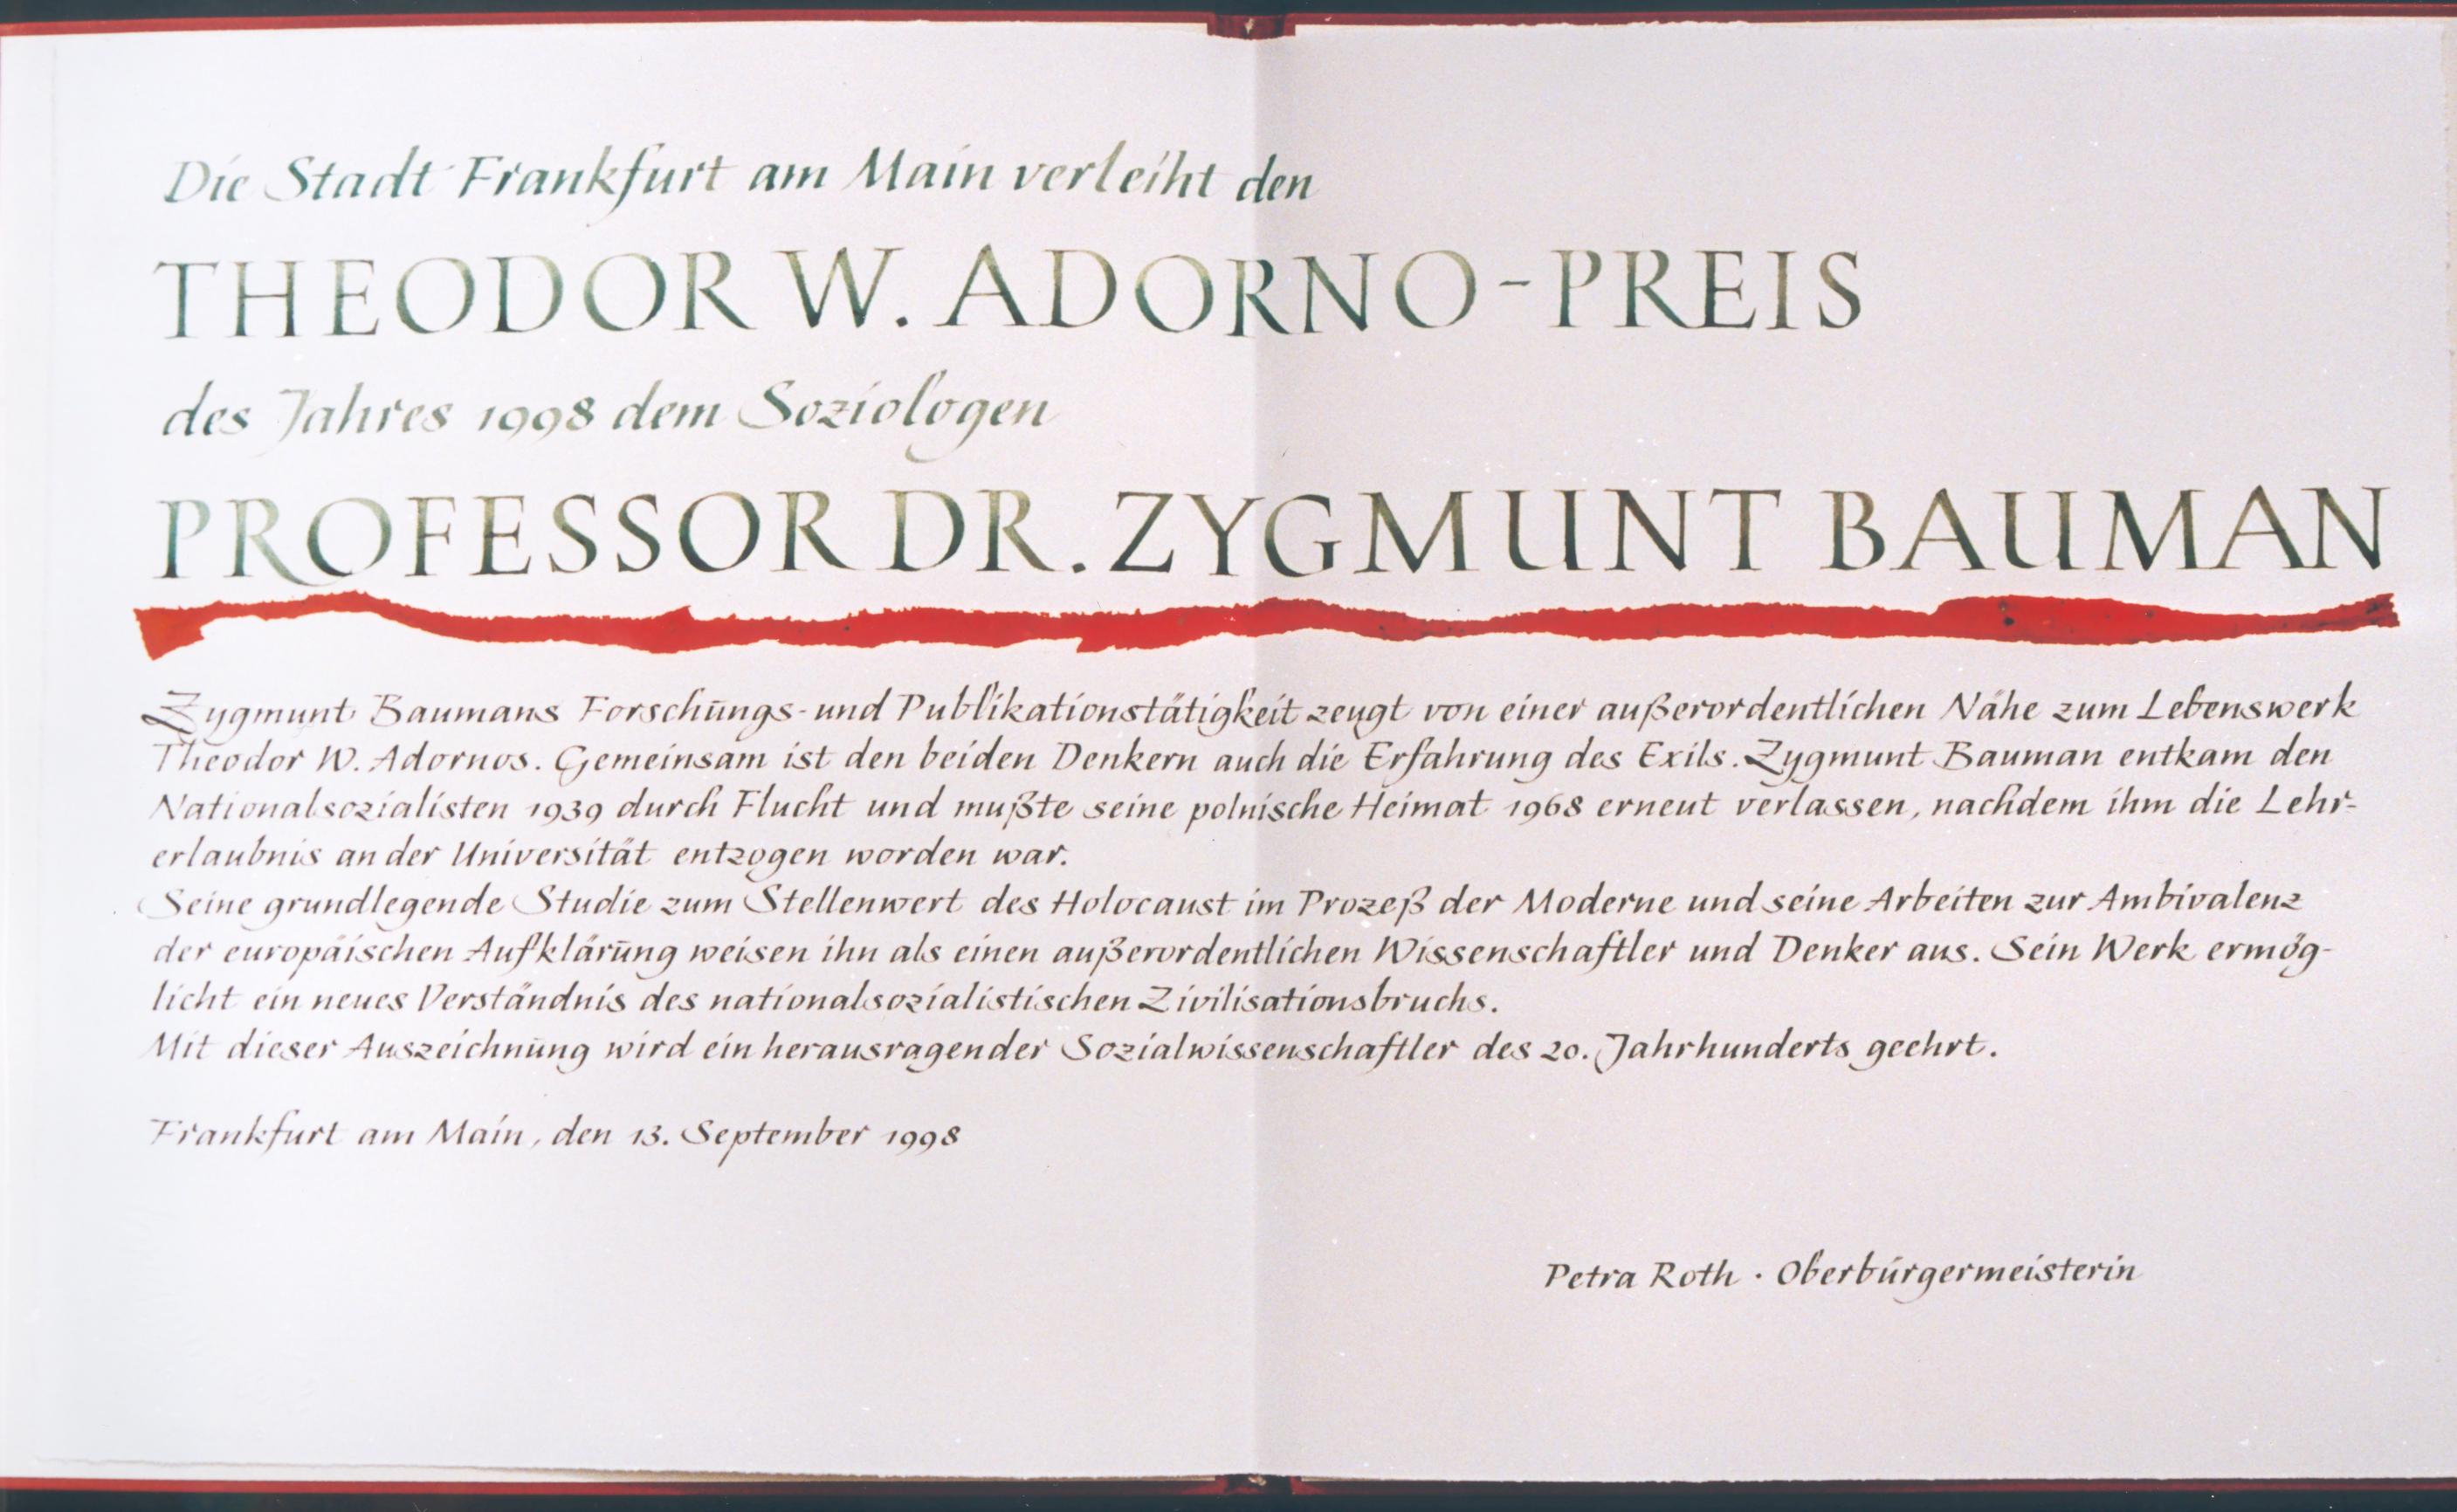 Die Stadt Frankfurt am Main verleiht den
THEODOR W. ADORNO-PREIS
des Jahres 1998 dem Soziologen
PROFESSOR DR. ZYGMUNT BAUMAN
Zygmunt Baumans Forschungs- und Publikationstätigkeit zeugt von einer außerordentlichen Nähe zum Lebenswerk
Theodor W. Adornos. Gemeinsam ist den beiden Denkern auch die Erfahrung des Exils. Zygmunt Bauman entkam den
Nationalsozialisten 1939 durch Flucht und mußte seine polnische Heimat 1968 erneut verlassen, nachdem ihm die Lehr-
erlaubnis an der Universität entzogen worden war.
Seine grundlegende Studie zum Stellenwert des Holocaust im Prozeß der Moderne und seine Arbeiten zur Ambivalenz
der europäischen Aufklärung weisen ihn als einen außerordentlichen Wissenschaftler und Denker aus. Sein Werk ermög-
licht ein neues Verständnis des nationalsozialistischen Zivilisationsbruchs.
Mit dieser Auszeichnung wird ein herausragender Sozialwissenschaftler des 20. Jahrhunderts geehrt.
Frankfurt am Main, den 13. September 1998
Petra Roth · Oberbürgermeisterin